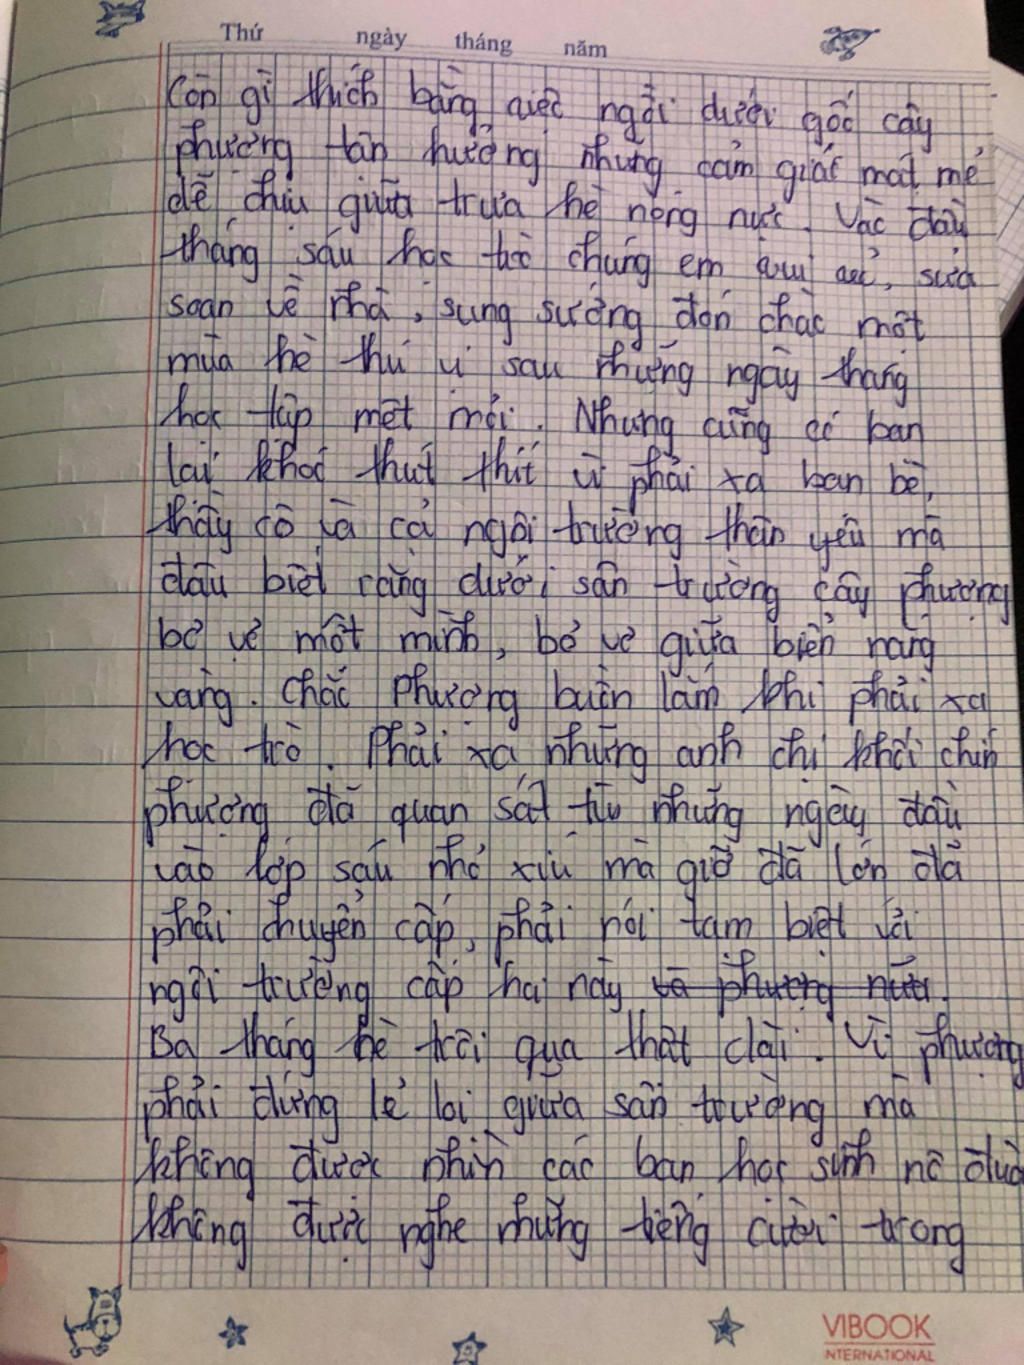 Thứ ngày tháng năm
Còn gì thích bằng việc ngồi dưới gốc cây
phượng tận hưởng những cảm giác mát mẻ
dễ chịu giữa trưa hè nóng nực. Vào đầu
tháng sáu học trò chúng em vui vẻ, sửa
soạn về nhà, sung sướng đón chào một
mùa hè thú vị sau những ngày tháng
học tập mệt mỏi. Nhưng cũng có bạn
lại khóc thút thít vì phải xa bạn bè,
thầy cô và cả ngôi trường thân yêu mà
đâu biết rằng dưới sân trường cây phượng
bơ vơ một mình, bơ vơ giữa biển nắng
vàng. Chắc Phượng buồn lắm khi phải xa
học trò. Phải xa những anh chị khối chín
phượng đã quan sát từ những ngày đầu
vào lớp sáu nhỏ xíu mà giờ đã lớn đã
phải chuyển cấp, phải nói tạm biệt với
ngôi trường cấp hai này và phượng nữa.
Ba tháng hè trôi qua thật dài. Vì phượng
phải đứng lẻ loi giữa sân trường mà
không được nhìn các bạn học sinh nô đùa
không được nghe những tiếng cười trong
VIBOOK
INTERNATIONAL